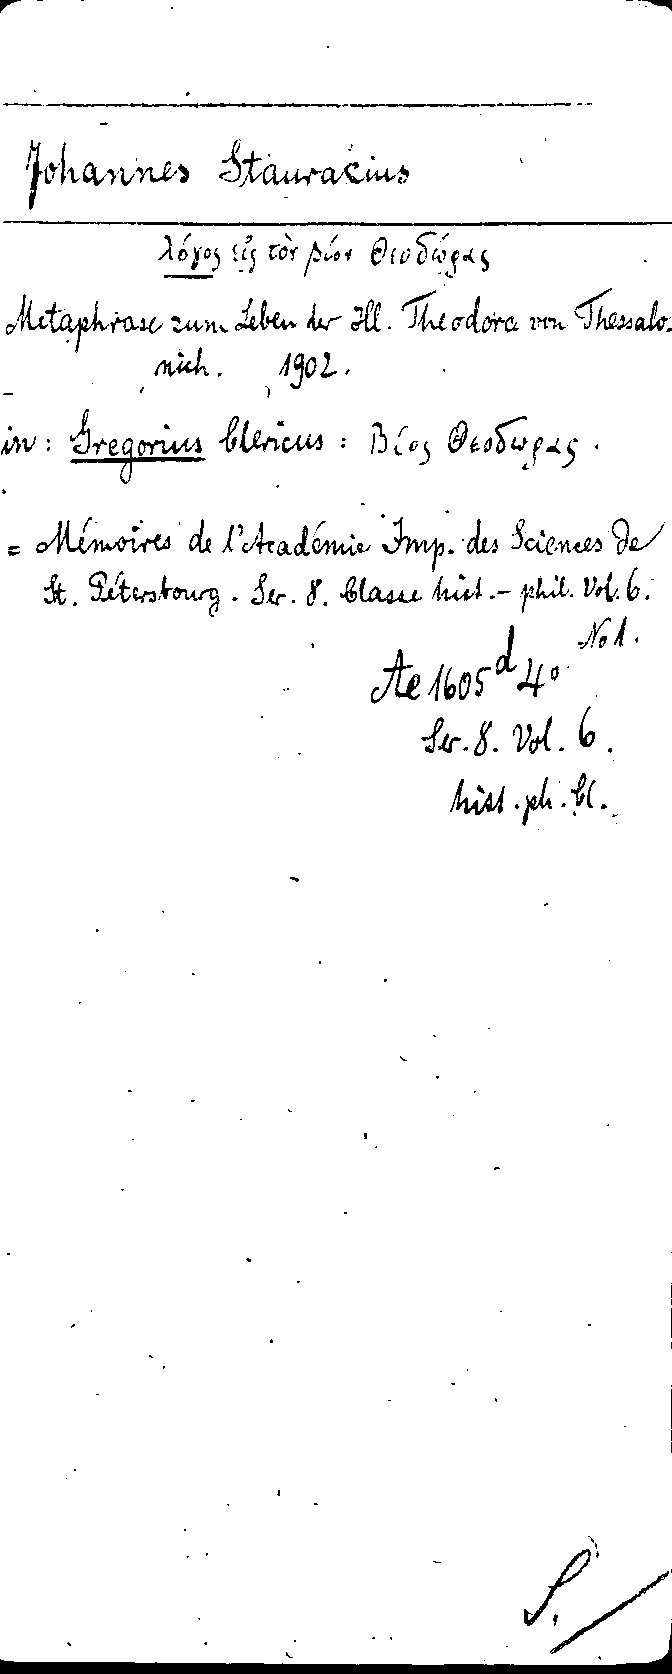 Johannes Stauracius
λόγος εἰς τὸν βίον Θεοδώρας
Metaphrase zum Leben der Hl. Theodora von Thessalo-
nich. 1902.
in: Gregorius Clericus: Βίος Θεοδωρας.
= Mémoires de l'Académie Imp. des Sciences de
St. Pétersbourg. Ser. 8. Classe hist.- phil. Vol. 6.
No 1.
Ae 1605 d 4°
Ser. 8. Vol. 6.
hist. ph. Cl.
S.